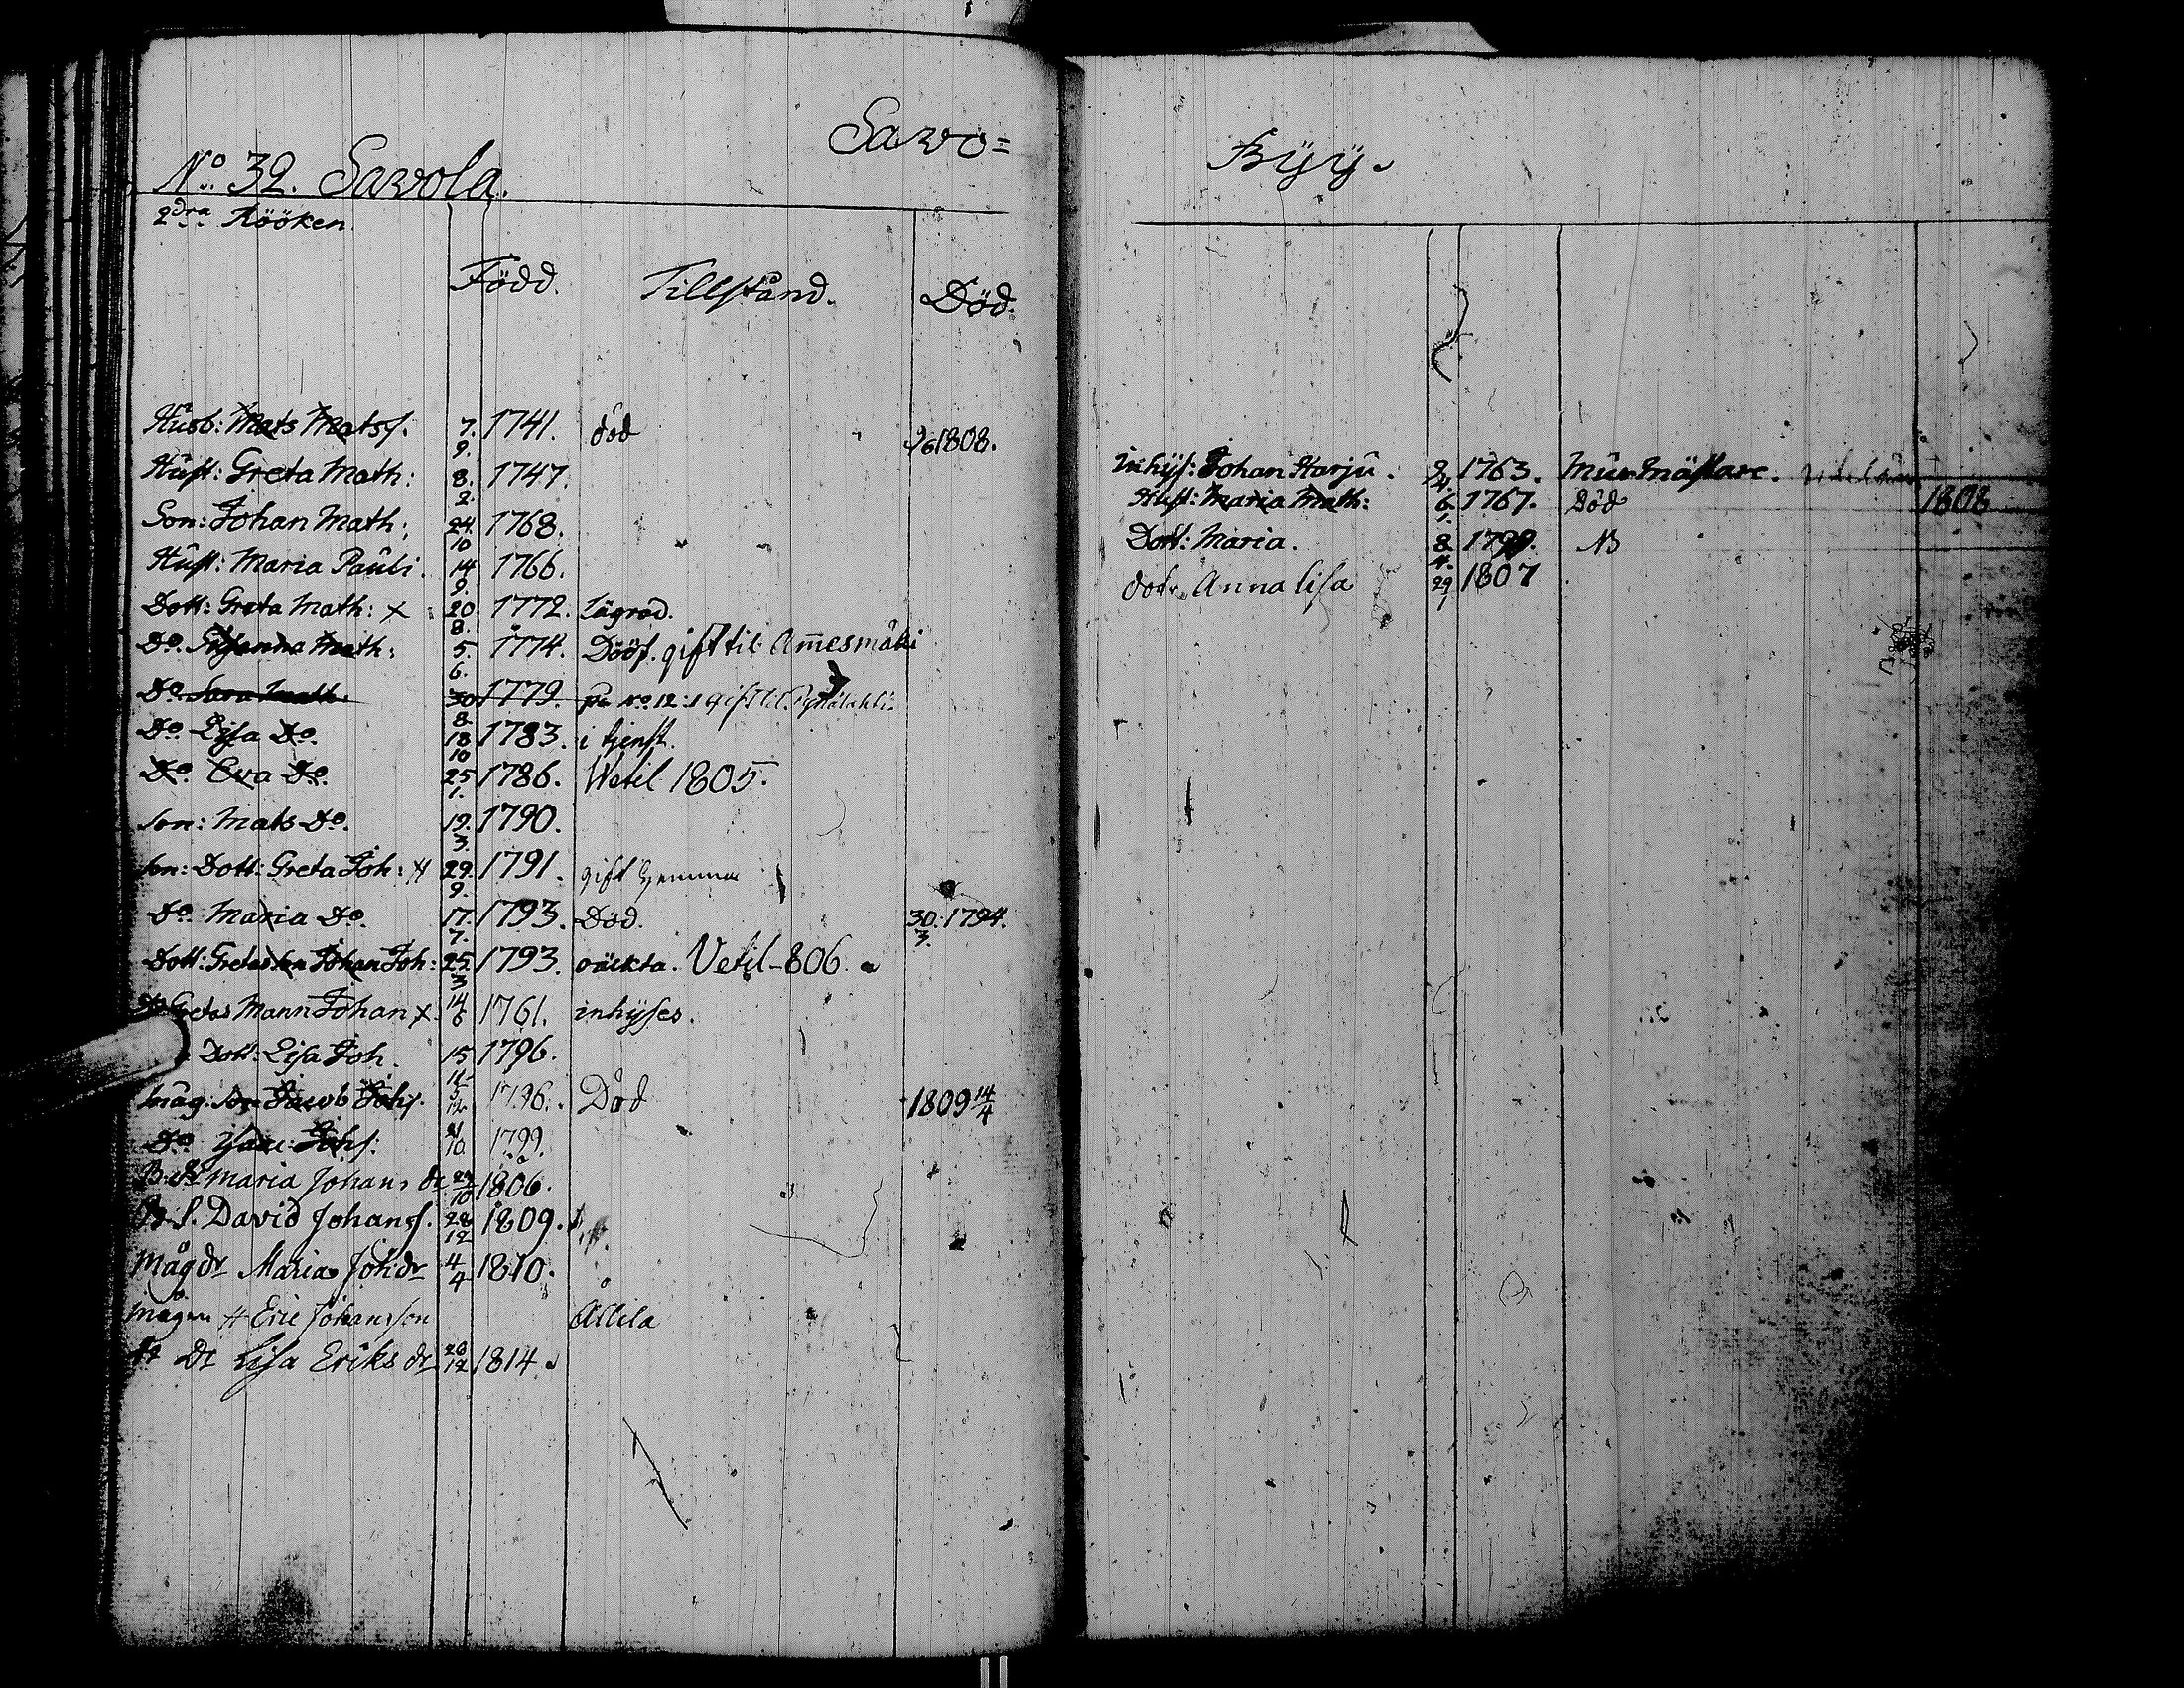 Savo=
No. 32. Savola.
2dra Rööken.
Född. Tillstånd. Död.
Husb: Mats Matss. 7. 9. 1741. död 1808.
Hust: Greta Math: 8. 2. 1747.
Son: Johan Math: 24. 10 1768.
Hust: Maria Pauli. 14 9. 1766.
Dott: Greta Math: x 20 8. 1772. Lägrad.
Do. Susanna Math: 5. 6. 1774. Dööf. gift til Am̄esmäki
Do. Sara Math: 30 8. 1779. No. 12:1 gift til
Do. Lisa Do. 18 10 1783. i tjenst.
Do. Eva Do. 25 1. 1786. Wetil 1805.
Son: Mats Do. 19. 3. 1790.
Son: Dott: Greta Joh: 29. 9. 1791. gift hemma
Do. Maria Do. 17. 7. 1793. Död. 30. 3. 1794.
Dott: Gretas son Johan Joh: 25 3 1793. oäckta. Vetil-806.
Gretas Mann Johan x 14 6 1761. inhyses.
Dott: Lisa Joh. 15 11 1796.
Måg: son Jacob Johs. 5 12 1796. Död 1809 14/4
Do Isac Johs: 21 10. 1799.
B. dr Maria Johans dr 27 10 1806.
B. S. David Johanss. 28 12 1809.
Måg dr Maria Joh:dr 4 4 1810.
mågen # Eric Johansson Allila
dr Lisa Eriks dr 20 12 1814.
Byy.
Inhys: Johan Harju. 9 4. 1763. Murmästare.
Hust: Maria Math: 6 1. 1767. Död 1808
Dott: Maria. 8 4. NB
dotr. Anna Lisa 29 1 1807